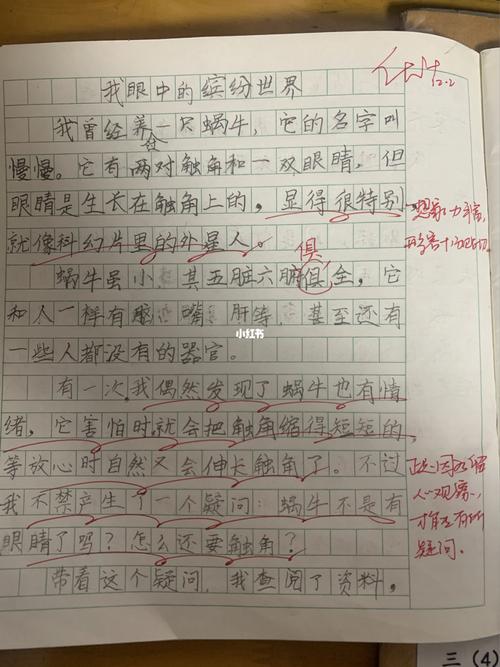 12.2
我眼中的缤纷世界
我曾经养一只蜗牛，它的名字叫
慢慢。它有两对触角和一双眼睛，但
眼睛是生长在触角上的，显得很特别
就像科幻片里的外星人。
俱
蜗牛虽小，其五脏六腑俱全，它
和人一样有 嘴、肝等，甚至还有
一些人都没有的器官。
小红书
有一次，我偶然发现了蜗牛也有情
绪，它害怕时就会把触角缩得短短的，
等放心时自然又会伸长触角了。不过
我不禁产生了一个疑问：蜗牛不是有
眼睛了吗？怎么还要触角？
疑问。
带着这个疑问，我查阅了资料，
三（4）